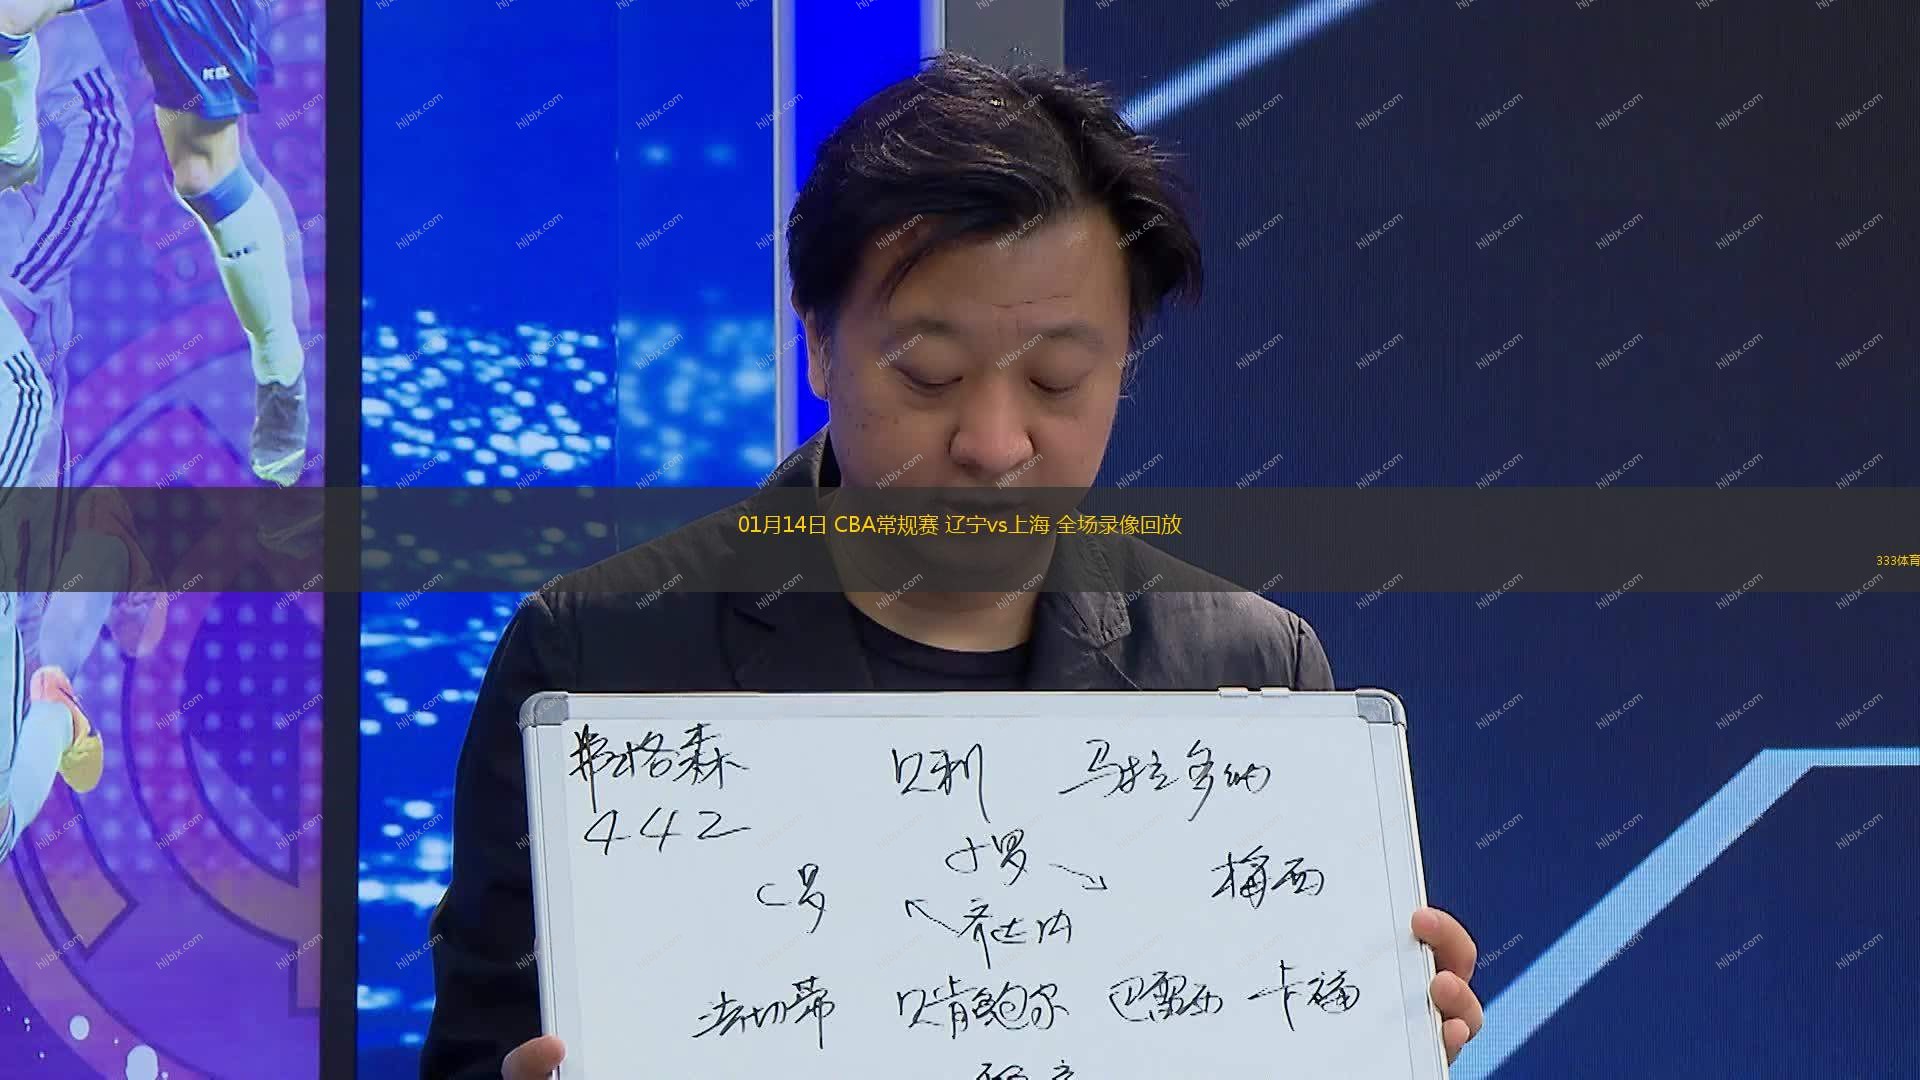 01月14日 CBA常规赛 辽宁vs上海 全场录像回放
333体育
hljbjx.com
弗格森 贝利 马拉多纳
442
小罗
C罗 梅西
齐达内
法切蒂 贝肯鲍尔 巴雷西 卡福